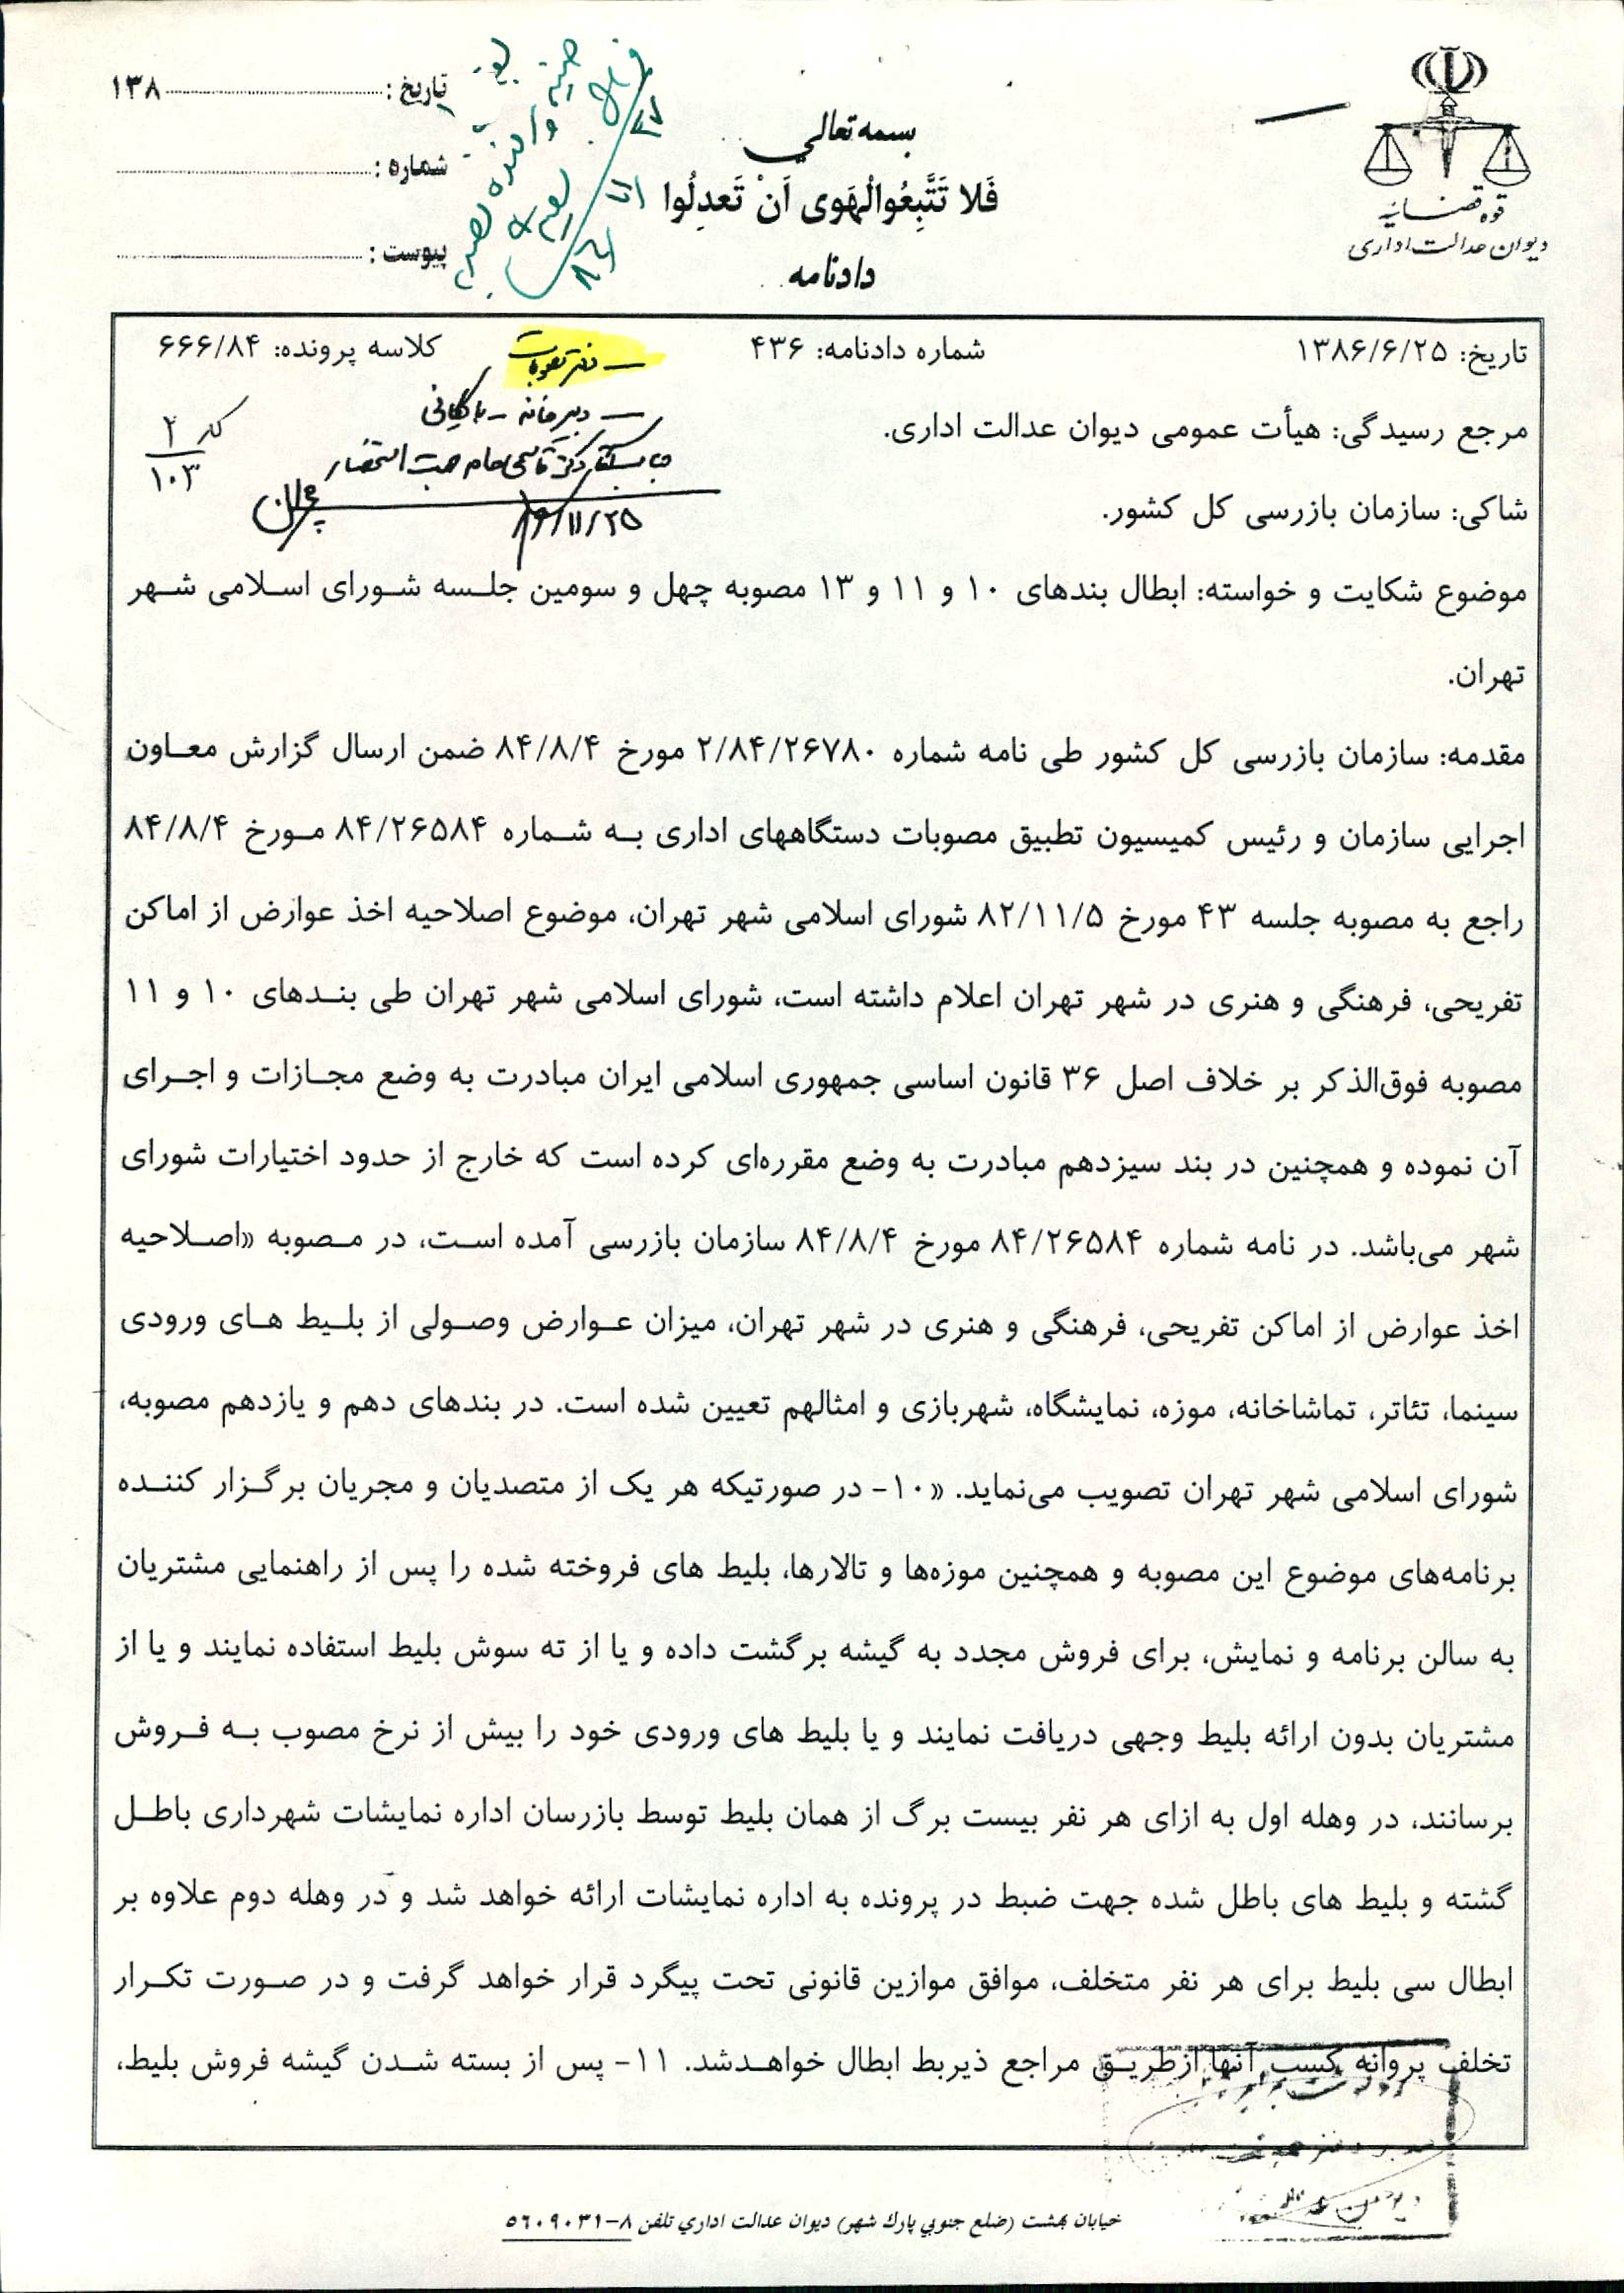 قوه قضائیه
دیوان عدالت اداری
بسمه تعالی
فَلا تَتَّبِعُوالْهَوی اَنْ تَعدِلُوا
دادنامه
تاریخ: ۱۳۸
شماره:
پیوست:
تاریخ: ۱۳۸۶/۶/۲۵ شماره دادنامه: ۴۳۶ کلاسه پرونده: ۶۶۶/۸۴
دفتر مصوبات
دبیرخانه - بایگانی
۸۶/۱۱/۲۵
کد ۲
۱۰۳
مرجع رسیدگی: هیأت عمومی دیوان عدالت اداری.
شاکی: سازمان بازرسی کل کشور.
موضوع شکایت و خواسته: ابطال بندهای ۱۰ و ۱۱ و ۱۳ مصوبه چهل و سومین جلسه شورای اسلامی شهر
تهران.
مقدمه: سازمان بازرسی کل کشور طی نامه شماره ۲/۸۴/۲۶۷۸۰ مورخ ۸۴/۸/۴ ضمن ارسال گزارش معاون
اجرایی سازمان و رئیس کمیسیون تطبیق مصوبات دستگاههای اداری به شماره ۸۴/۲۶۵۸۴ مورخ ۸۴/۸/۴
راجع به مصوبه جلسه ۴۳ مورخ ۸۲/۱۱/۵ شورای اسلامی شهر تهران، موضوع اصلاحیه اخذ عوارض از اماکن
تفریحی، فرهنگی و هنری در شهر تهران اعلام داشته است، شورای اسلامی شهر تهران طی بندهای ۱۰ و ۱۱
مصوبه فوق‌الذکر بر خلاف اصل ۳۶ قانون اساسی جمهوری اسلامی ایران مبادرت به وضع مجازات و اجرای
آن نموده و همچنین در بند سیزدهم مبادرت به وضع مقرره‌ای کرده است که خارج از حدود اختیارات شورای
شهر می‌باشد. در نامه شماره ۸۴/۲۶۵۸۴ مورخ ۸۴/۸/۴ سازمان بازرسی آمده است، در مصوبه «اصلاحیه
اخذ عوارض از اماکن تفریحی، فرهنگی و هنری در شهر تهران، میزان عوارض وصولی از بلیط های ورودی
سینما، تئاتر، تماشاخانه، موزه، نمایشگاه، شهربازی و امثالهم تعیین شده است. در بندهای دهم و یازدهم مصوبه،
شورای اسلامی شهر تهران تصویب می‌نماید. «۱۰- در صورتیکه هر یک از متصدیان و مجریان برگزار کننده
برنامه‌های موضوع این مصوبه و همچنین موزه‌ها و تالارها، بلیط های فروخته شده را پس از راهنمایی مشتریان
به سالن برنامه و نمایش، برای فروش مجدد به گیشه برگشت داده و یا از ته سوش بلیط استفاده نمایند و یا از
مشتریان بدون ارائه بلیط وجهی دریافت نمایند و یا بلیط های ورودی خود را بیش از نرخ مصوب به فروش
برسانند، در وهله اول به ازای هر نفر بیست برگ از همان بلیط توسط بازرسان اداره نمایشات شهرداری باطل
گشته و بلیط های باطل شده جهت ضبط در پرونده به اداره نمایشات ارائه خواهد شد و در وهله دوم علاوه بر
ابطال سی بلیط برای هر نفر متخلف، موافق موازین قانونی تحت پیگرد قرار خواهد گرفت و در صورت تکرار
تخلف پروانه کسب آنها ازطریق مراجع ذیربط ابطال خواهدشد. ۱۱- پس از بسته شدن گیشه فروش بلیط،
خیابان بهشت (ضلع جنوبي پارك شهر) دیوان عدالت اداري تلفن ۸-۵۶۰۹۰۳۱